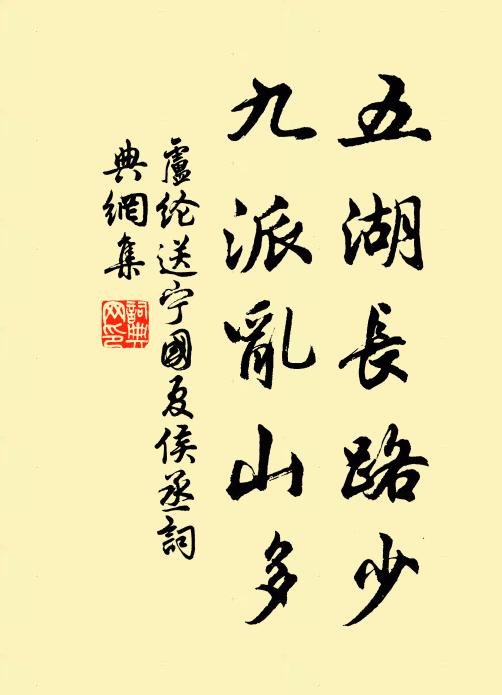 五湖長路少
九派亂山多
盧纶送宁國夏侯丞詞
典網集
詞典
网印